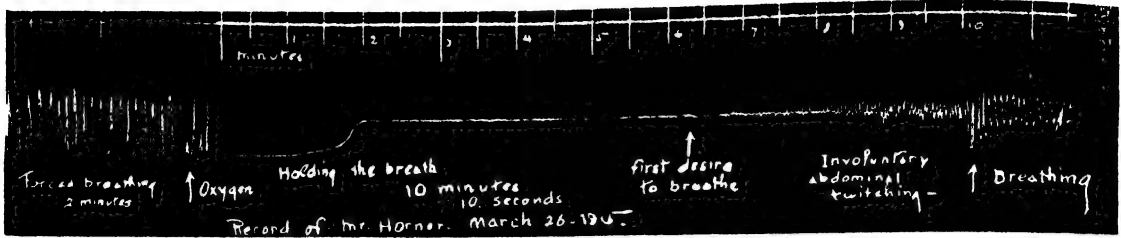 1 2 3 4 5 6 7 8 9 10
minutes
Forced breathing
2 minutes
Oxygen
Holding the breath
10 minutes
10. seconds
first desire
to breathe
Involuntary
abdominal
twitching-
Breathing
Record of Mr. Horner. March 26-